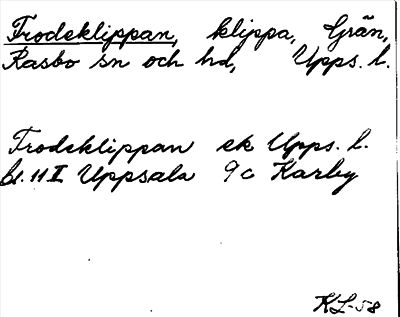 Frodeklippan, klippa, Grän,
Rasbo sn och hd, Upps. l.
Frodeklippan ek Upps. l.
bl. 11 I Uppsala 9c Karby
KL-58